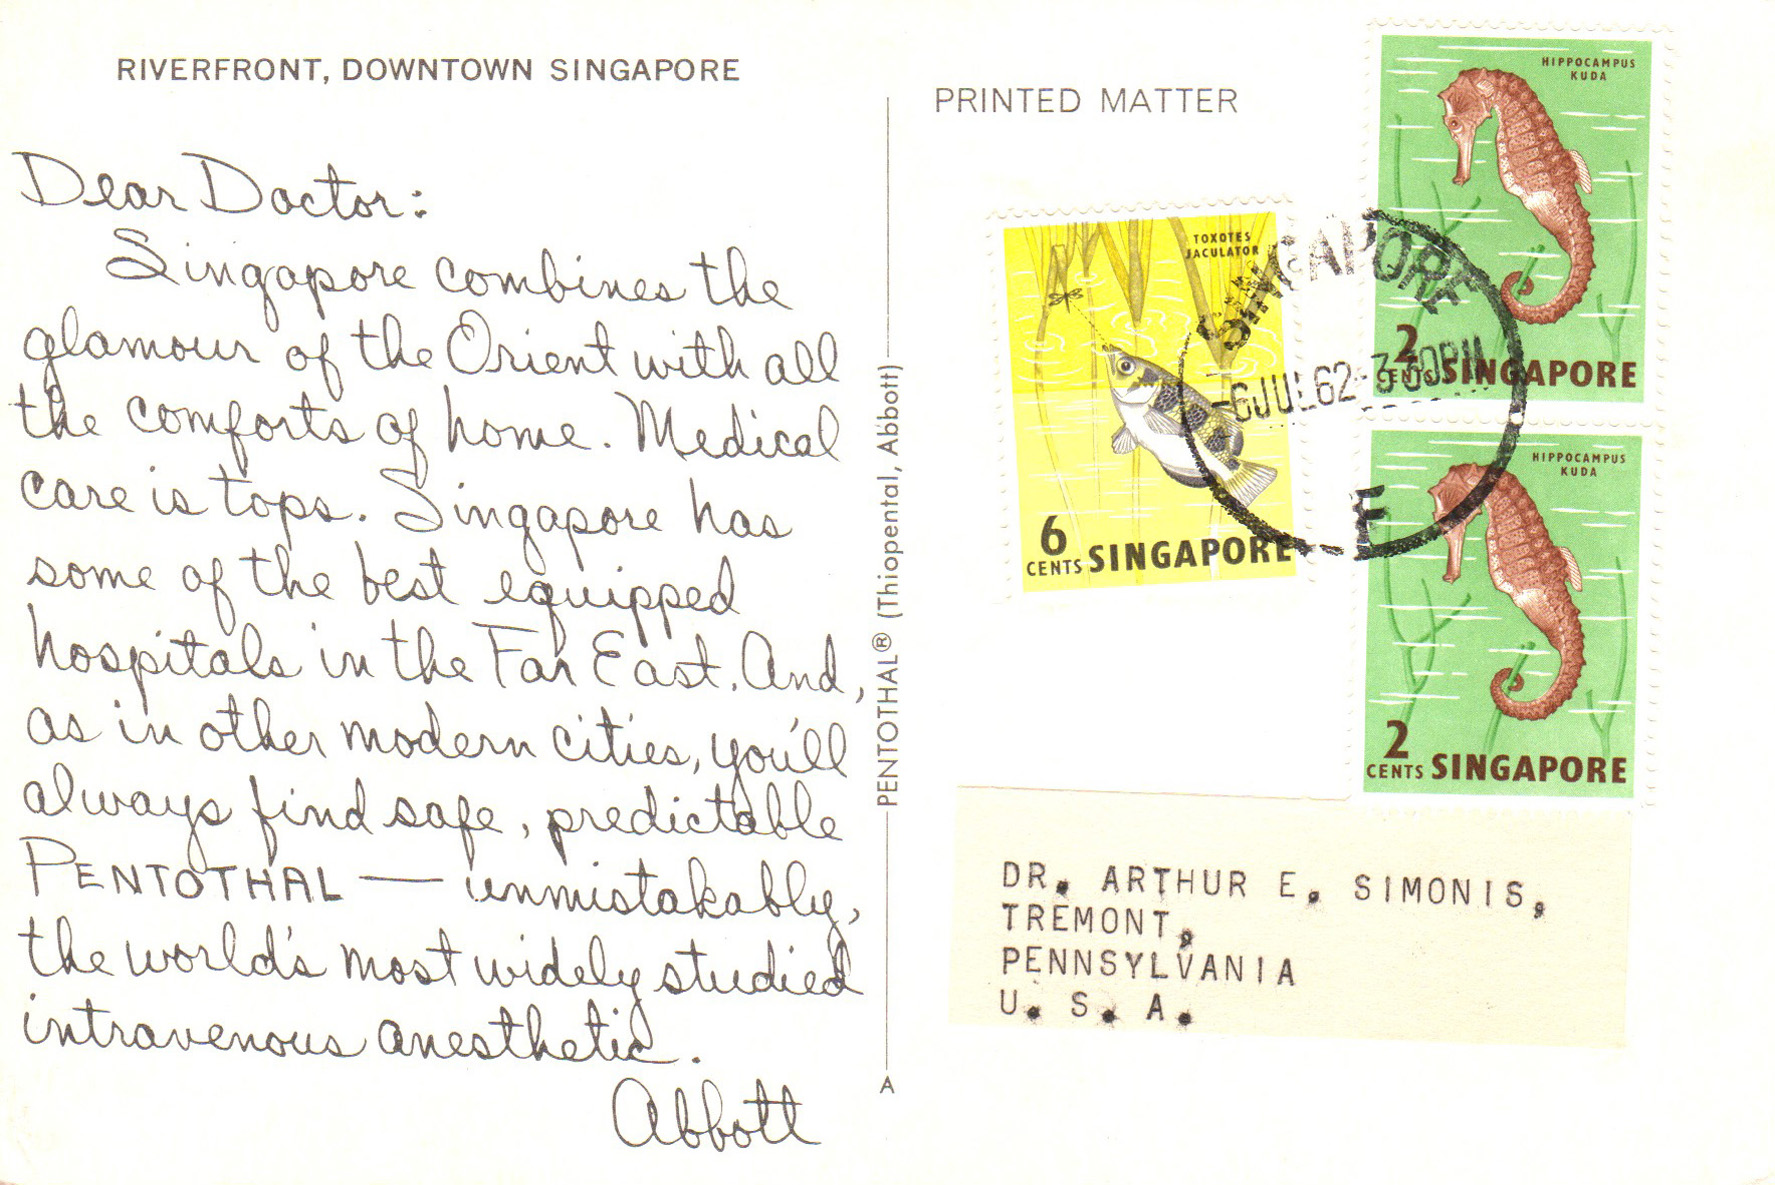 RIVERFRONT, DOWNTOWN SINGAPORE
Dear Doctor:
Singapore combines the
glamour of the Orient with all
the comforts of home. Medical
care is tops. Singapore has
some of the best equipped
hospitals in the Far East. And,
as in other modern cities, you'll
always find safe, predictable
PENTOTHAL — unmistakably,
the world's most widely studied
intravenous anesthetic.
Abbott
PENTOTHAL® (Thiopental, Abbott)
A
PRINTED MATTER
TOXOTES
JACULATOR
6
CENTS SINGAPORE
HIPPOCAMPUS
KUDA
2
CENTS SINGAPORE
HIPPOCAMPUS
KUDA
2
CENTS SINGAPORE
SINGAPORE
-6 JUL 62
E
DR. ARTHUR E. SIMONIS,
TREMONT,
PENNSYLVANIA
U. S. A.